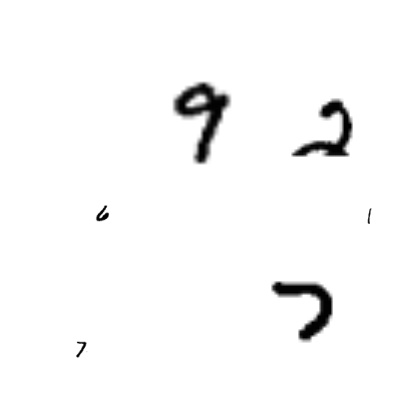 9 2
6 1
7
7